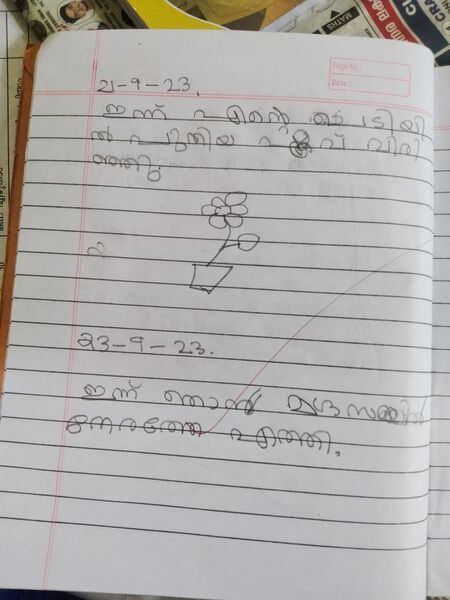 MATHS
Page No:
Date:
21-9-23.
ഇന്ന് എന്റെ ചെടിയി
ൽ പുതിയ പൂവ് വിരി
ഞ്ഞു
23-9-23.
ഇന്ന് ഞാൻ മദ്രസയിൽ
നേരത്തേ എത്തി.